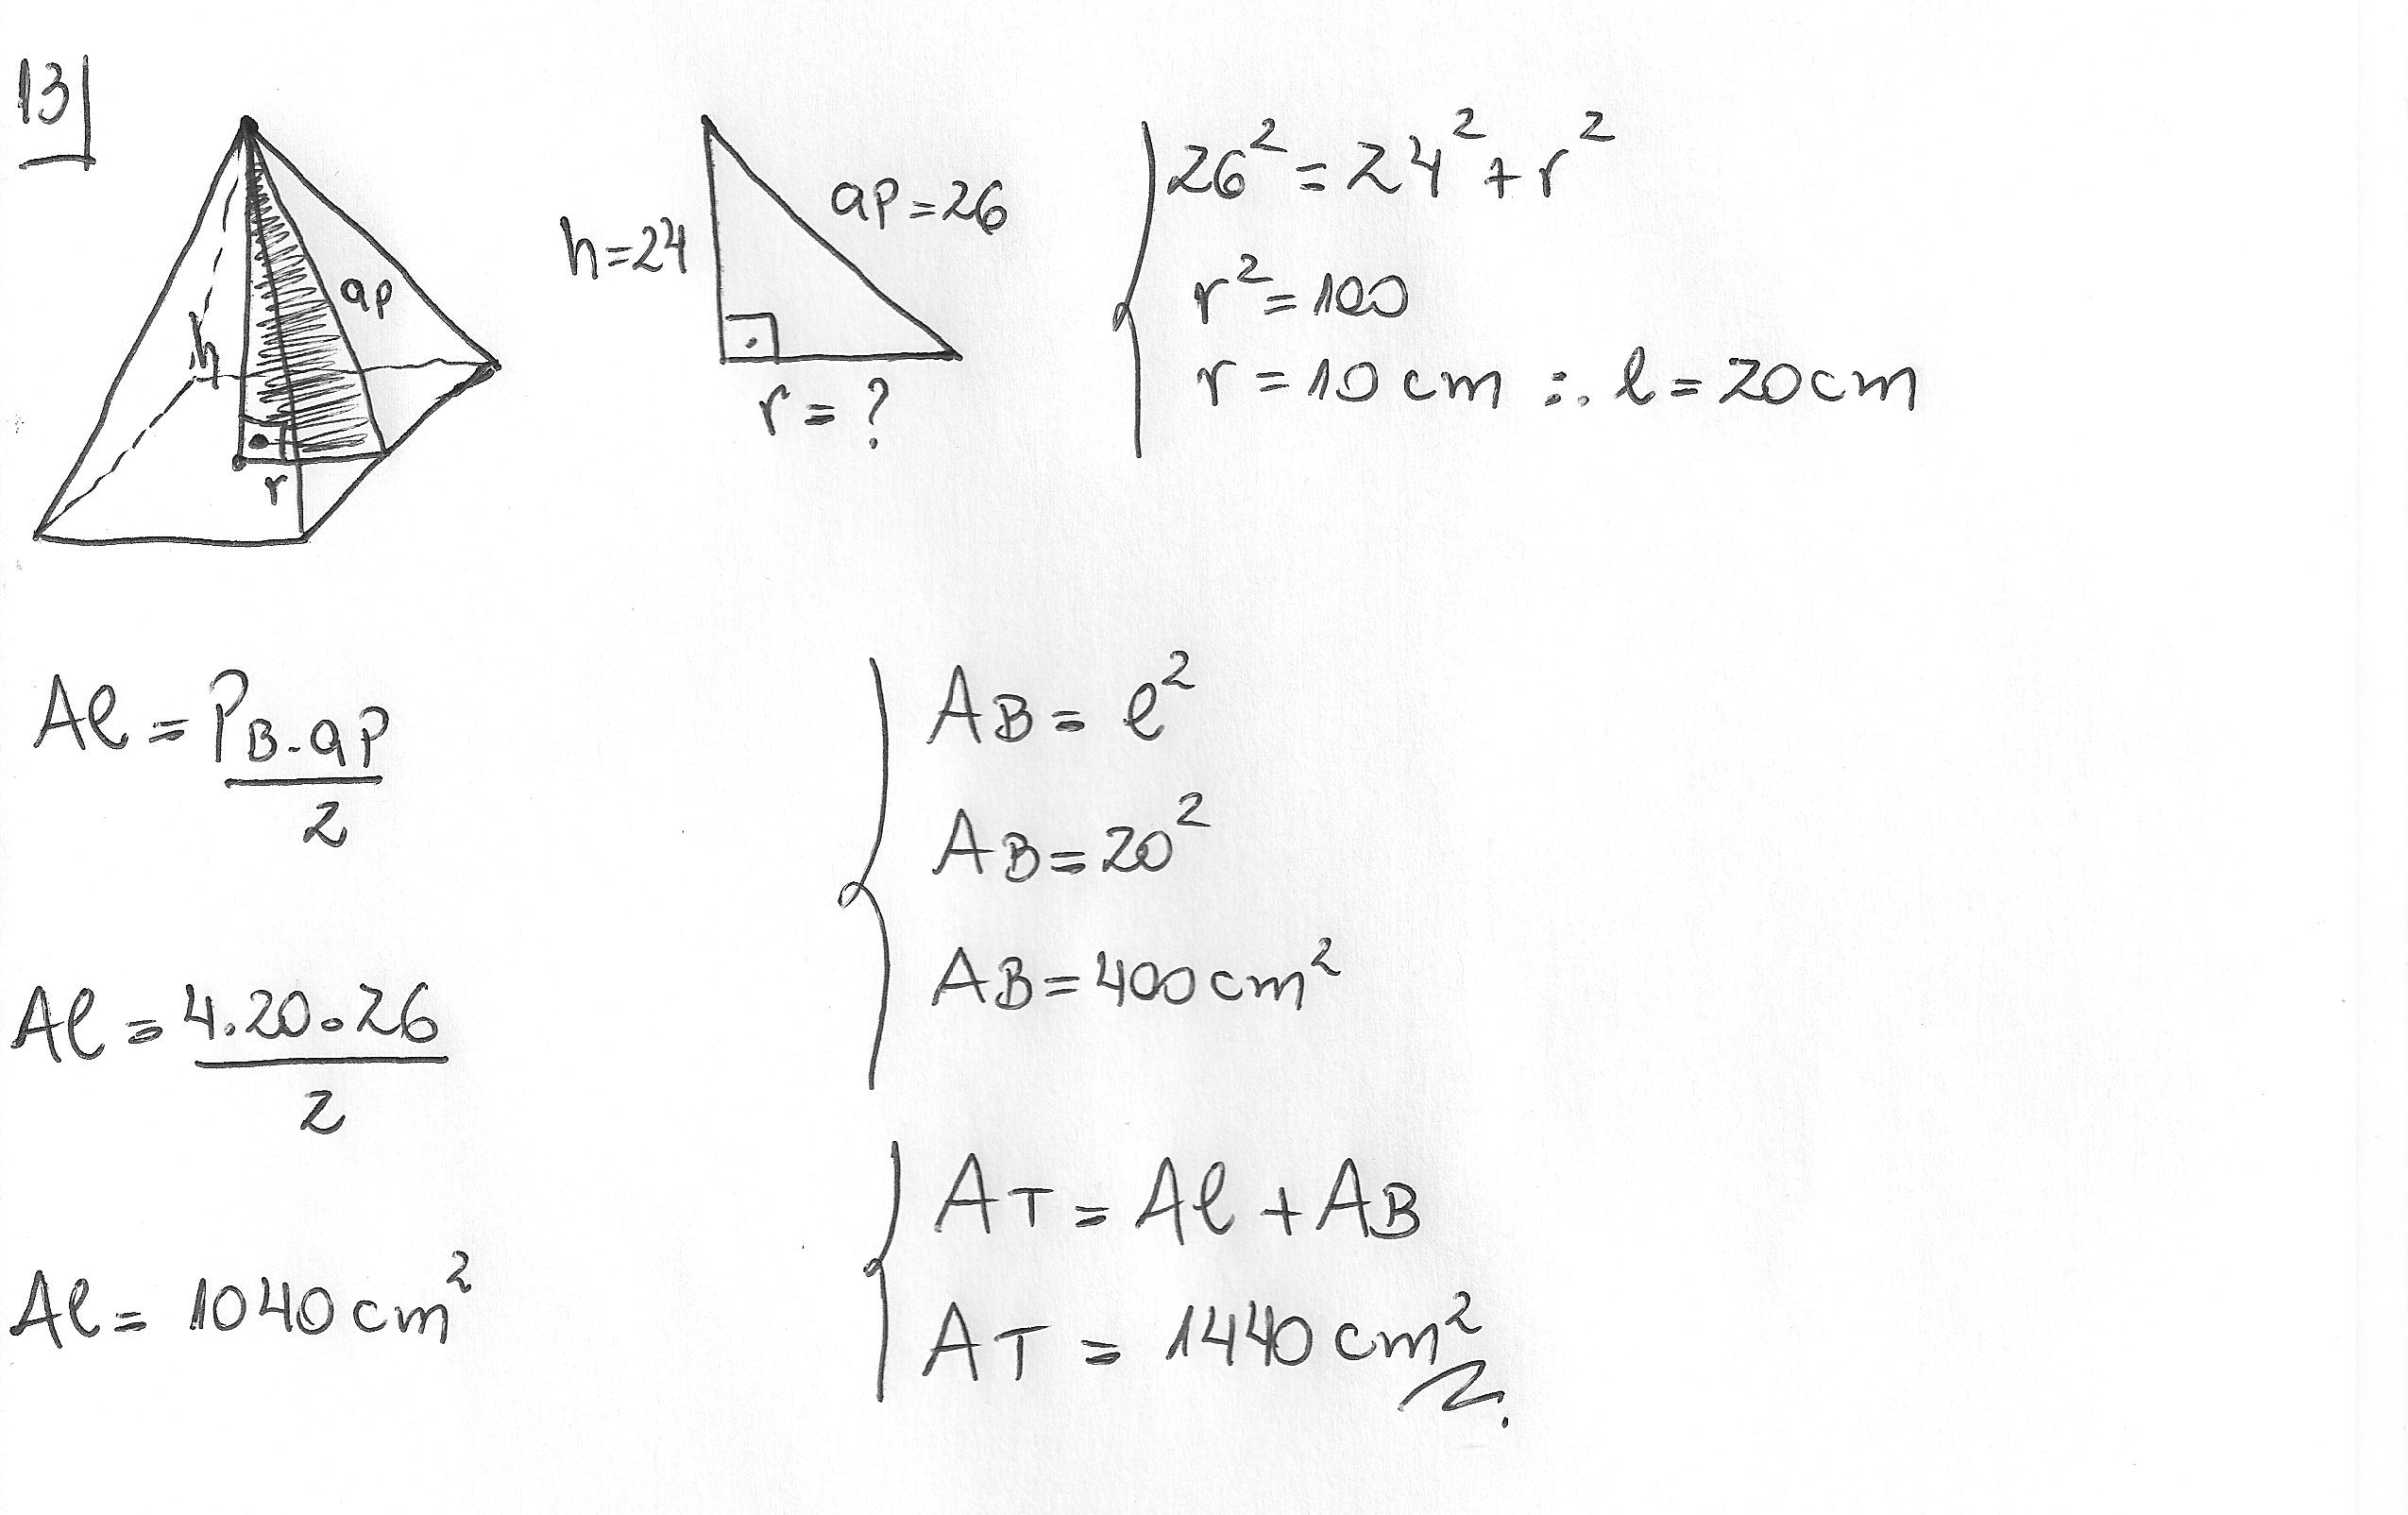 13
h
ap
r
h=24
ap=26
r=?
26²=24²+r²
r²=100
r=10cm ∴ l=20cm
Al=PB.ap
2
Al=4.20.26
2
Al=1040cm²
AB=l²
AB=20²
AB=400cm²
AT=Al+AB
AT=1440cm²